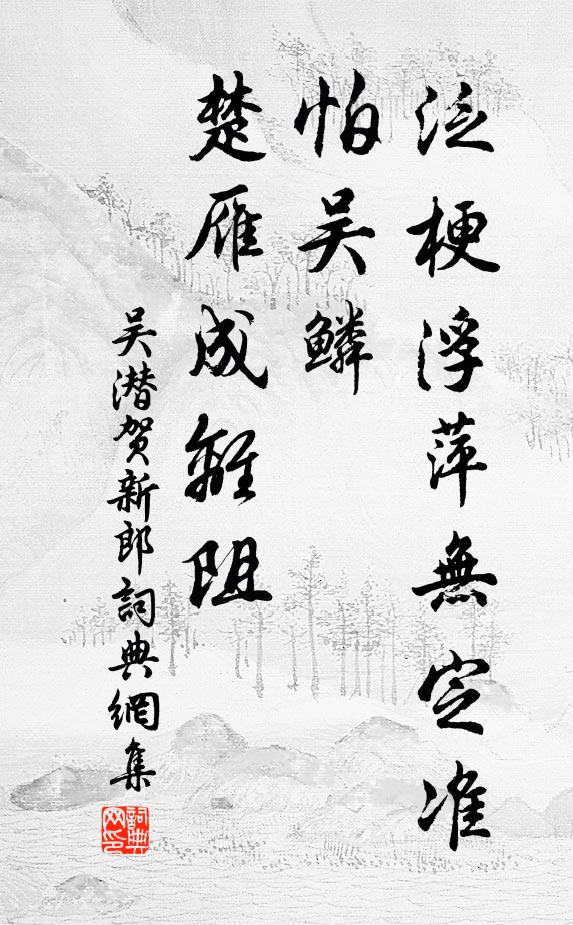 泛梗浮萍無定准
怕吴鳞
楚雁成離阻
吴潜贺新郎詞典網集
詞典网印